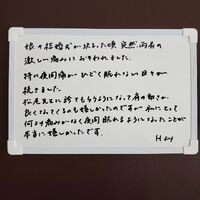 娘の結婚式が決まった頃 突然、両肩の
激しい痛みにおそわれました。
特に夜間痛がひどく眠れない日々が
続きました。
松尾先生に診てもらうようになって肩の動きが
良くなってくるのも嬉しかったのですが 私にとって
何より痛みがなく夜間眠れるようになったことが
本当に嬉しかったです。